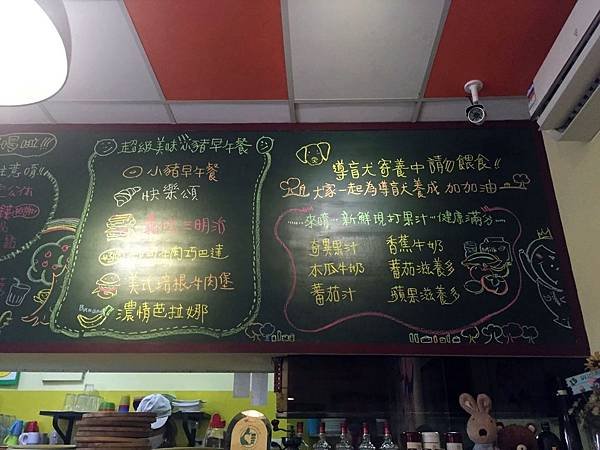 超級美味小豬早午餐
小豬早午餐
快樂頌
三明治
牛肉巧巴達
美式培根牛肉堡
Banana
濃情芭拉娜
導盲犬寄養中 請勿餵食!!
大家一起為導盲犬養成 加加油
來唷…新鮮現打果汁…健康滿分…
奇異果汁 香蕉牛奶
木瓜牛奶 蕃茄滋養多
蕃茄汁 蘋果滋養多